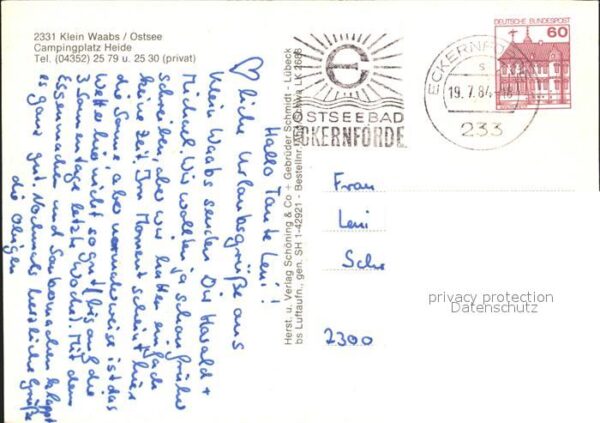 2331 Klein Waabs / Ostsee
Campingplatz Heide
Tel. (04352) 25 79 u. 25 30 (privat)
Hallo Tante Leni!
♡liche Urlaubsgrüße aus
Klein Waabs senden Dir Harald +
Michael. Wir wollten ja schon früher
schreiben, aber wir hatten einfach
keine Zeit. Im Moment scheint hier
die Sonne, aber normalerweise ist das
Wetter hier nicht so gut (bis auf die
3 Sonnentage letzte Woche). Mit dem
Essenmachen und Saubermachen klappt
es ganz gut. Nochmals herzliche Grüße
die obigen
Herst. u. Verlag Schöning & Co + Gebrüder Schmidt - Lübeck
bs Luftaufn., gen. SH 1-42921 - Bestellnr. LK 2668
OSTSEEBAD
ECKERNFÖRDE
ECKERNFÖRDE
s
19.7.84
233
DEUTSCHE BUNDESPOST
60
Frau
Leni
Sch
2300
privacy protection
Datenschutz